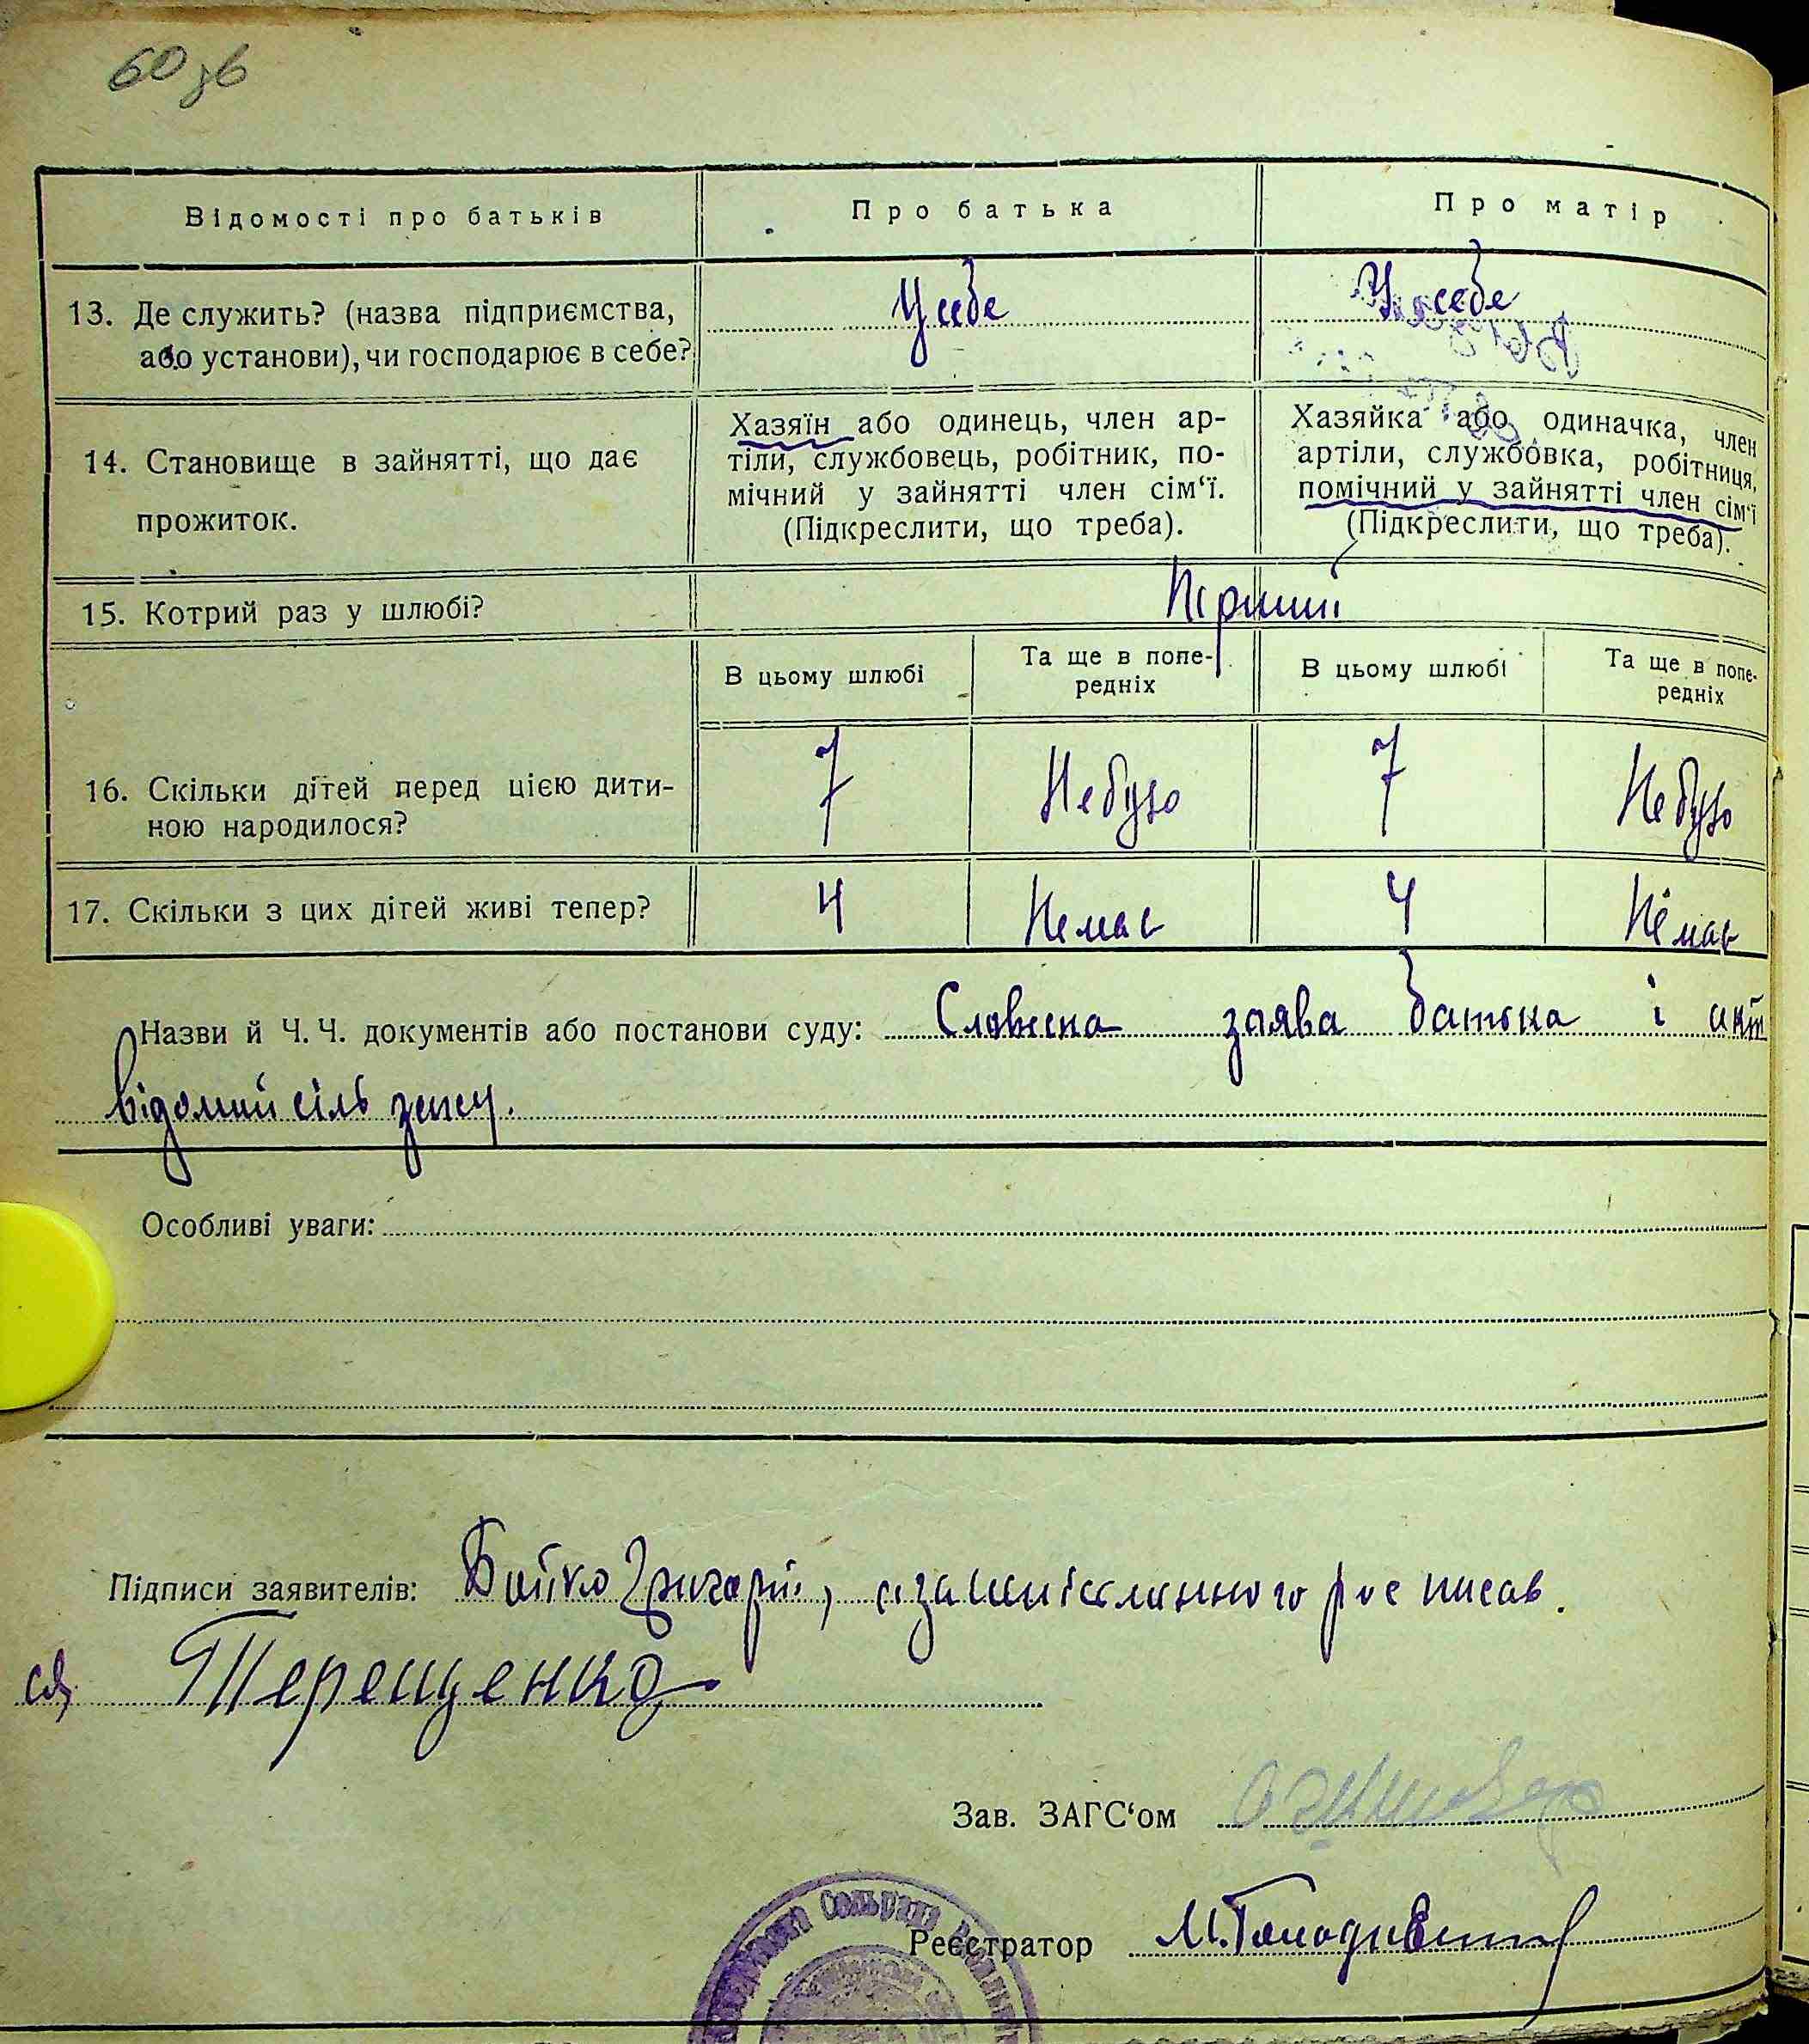 60 зв
Відомості про батьків
Про батька
Про матір
13. Де служить? (назва підприємства,
або установи), чи господарює в себе?
У себе
У себе
14. Становище в зайнятті, що дає
прожиток.
Хазяїн або одинець, член ар-
тіли, службовець, робітник, по-
мічний у зайнятті член сім‘ї.
(Підкреслити, що треба).
Хазяйка або одиначка, член
артіли, службовка, робітниця,
помічний у зайнятті член сім‘ї
(Підкреслити, що треба).
15. Котрий раз у шлюбі?
Перший
В цьому шлюбі
Та ще в попе-
редніх
В цьому шлюбі
Та ще в попе-
редніх
16. Скільки дітей перед цією дити-
ною народилося?
7
Небуло
7
Небуло
17. Скільки з цих дітей живі тепер?
4
Немає
4
Немає
Назви й Ч. Ч. документів або постанови суду: Словесна заява батька і акт
відомий сіль
Особливі уваги:
Підписи заявителів: Бойко Григорій, росписав
ся Терещенко
Зав. ЗАГС‘ом
Реєстратор
Сельрада